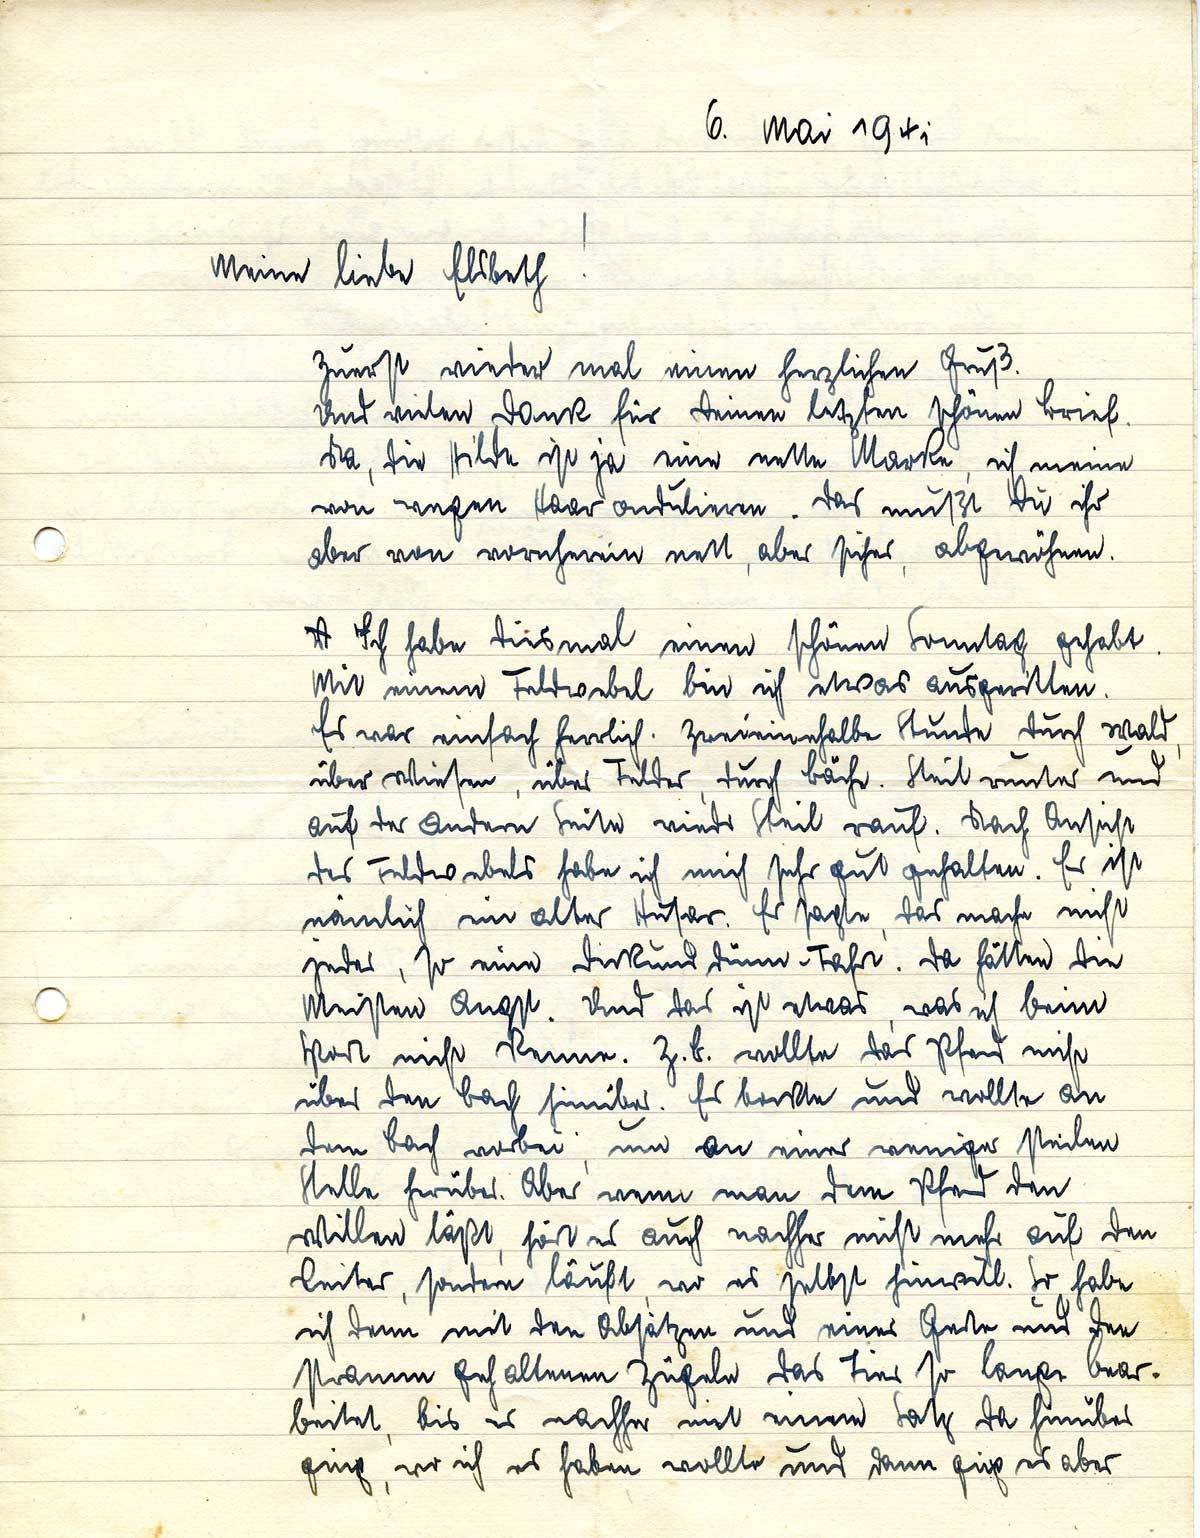 6. Mai 1941
Meine liebe Elsbeth!
Zuerst wieder mal einen herzlichen Gruß.
Und vielen Dank für Deinen letzten schönen Brief.
Na, die Hilde ist ja eine nette Marke, ich meine
von wegen Haar ondulieren. Das mußt Du ihr
aber von vornherein nett, aber sicher, abgewöhnen.
Ich habe diesmal einen schönen Sonntag gehabt.
Mit einem Feldwebel bin ich etwas ausgeritten.
Es war einfach herrlich. Zweieinehalbe Stunde durch Wald,
über Wiesen, über Felder, durch Bäche. Steil runter und
auf der andern Seite wiedr steil rauf. Nach Ansicht
des Feldwebels habe ich mich sehr gut gehalten. Er ist
nämlich ein alter Husar. Er sagte, das mache nicht
jeder, so eine Dickunddünn-Fahrt. Da hätten die
Meisten Angst. Und das ist etwas, was ich beim
Sport nicht kenne. Z.B. wollte das Pferd nicht
über den Bach hinüber. Es bockte und wollte an
dem Bach vorbei, um an einer weniger steilen
Stelle herüber. Aber wenn man dem Pferd den
Willen läßt, hört es auch nachher nicht mehr auf den
Reiter, sondern läuft, wo es selbst hinwill. So habe
ich denn mit den Absätzen und einer Gerte und den
stramm gehaltenen Zügeln das Tier so lange bear-
beitet, bis es nachher mit einem Satz da hinüber
ging, wo ich es haben wollte und dann ging es aber